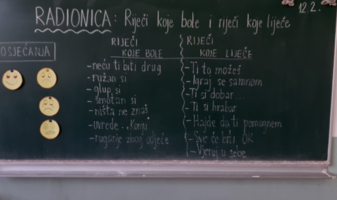 RADIONICA: Riječi koje bole i riječi koje liječe
12.2.
OSJEĆANJA
RIJEČI
KOJE BOLE
- neću ti biti drug
- ružan si
- glup si
- smotan si
- ništa ne znaš
- uvrede
- ruganje zbog odjeće
RIJEČI
KOJE LIJEČE
- Ti to možeš
- Igraj se sa mnom
- Ti si dobar
- Ti si hrabar
- Hajde da ti pomognem
- Sve će biti OK
- Vjeruj u sebe